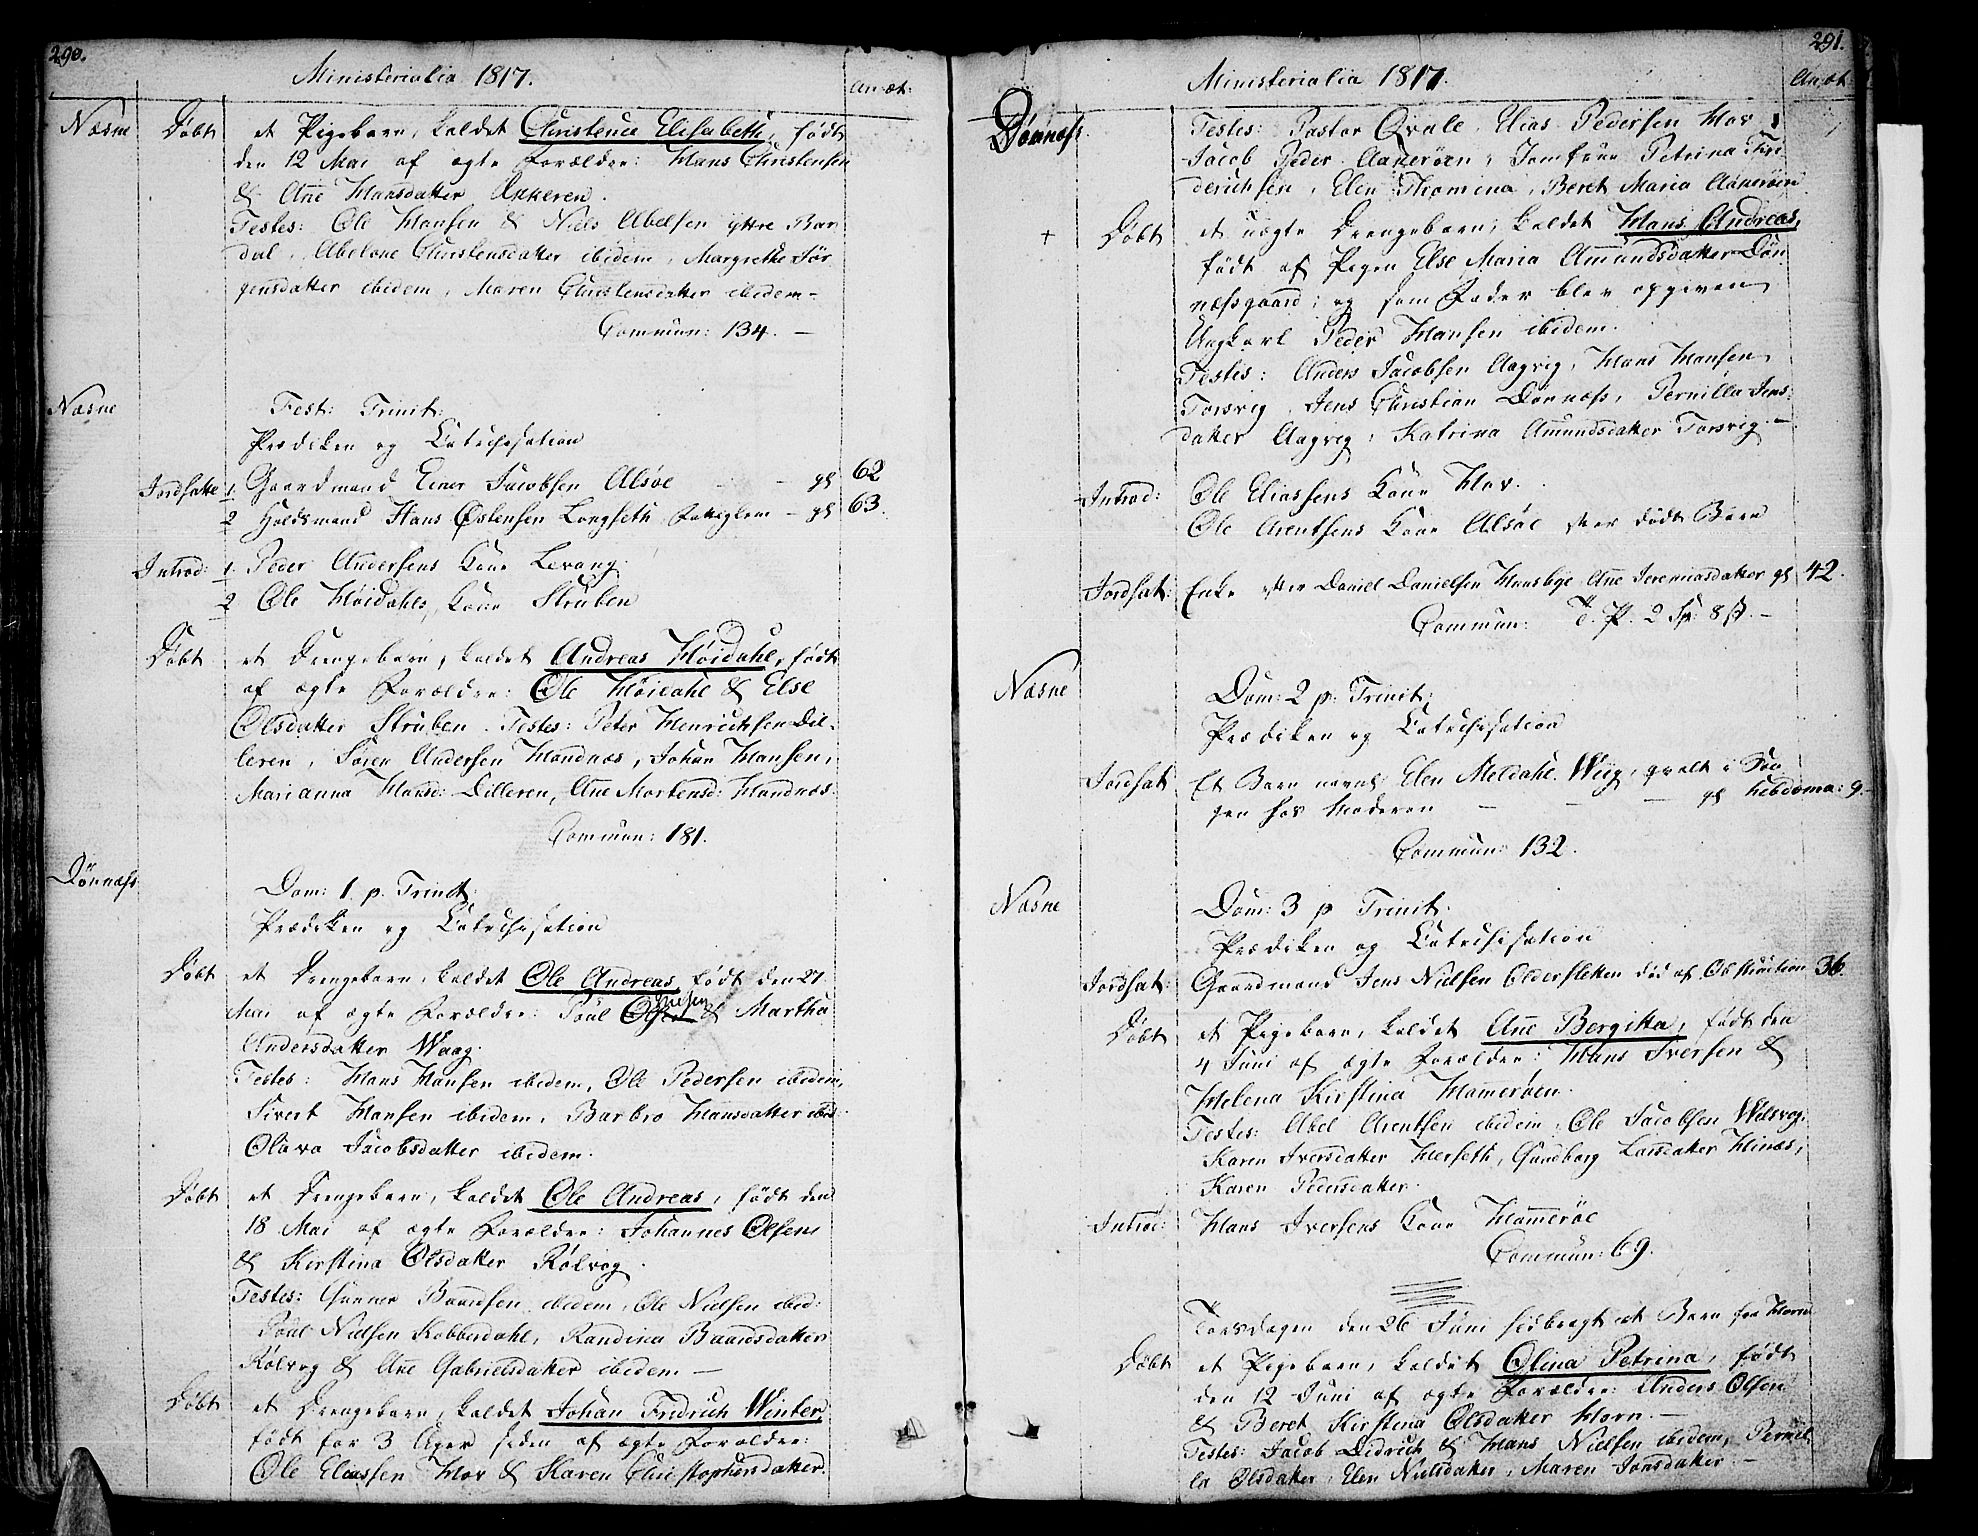 290.
Ministerialia 1817.
Annot:
Næsne Døbt et Pigebarn, kaldet Christence Elisabeth, født
den 12 Mai af ægte Forældre: Hans Christensen
& Añe Hansdatter Akkeren.
Testes: Ole Hansen & Niels Abelsen yttre Bar
dal, Abelone Christensdatter ibidem, Margrethe Jør
gensdatter ibidem, Maren Christensdatter ibidem –
Commun: 134. –
Næsne
Fest: Trinit:
Prædiken og Catechisation
Jordsatte 1. Gaardmand Einer Jacobsen Alsøe – – gl 62
2 Huusmand Hans Østensen Longseth – gl 63.
Introd: 1. Peder Andersens Kone Levang.
2 Ole Høidahls, Kone Struben
Døbt et Drengebarn, kaldet Andreas Høidahl, født
af ægte Forældre: Ole Høidahl & Else
Olsdatter Struben. Testes: Peter Henrichsen Dil-
leren, Søren Andersen Handnæs, Johan Hansen,
Marianna Hansd: Dilleren, Añe Mortensd: Handnæs.
Commun: 181.
Dönnæss
Dom: 1. p. Trinit:
Prædiken og Catechisation
Døbt et Drengebarn, kaldet Ole Andreas, født den 27
Mai af ægte Forældre: Paul & Martha
Andersdatter Waag.
Testes: Hans Hansen ibidem, Ole Pedersen ibidem,
Sivert Hansen ibidem, Barbro Hansdatter ibid:
Olava Jacobsdatter ibidem.
Døbt et Drengebarn, kaldet Ole Andreas, født den
18 Mai af ægte Forældre: Johannes Olsen
& Kirstina Olsdatter Rølvog.
Testes: Gunner Baardsen ibidem, Ole Nielsen ibid:
Paul Nielsen Kobberdahl, Randina Baardsdatter
Rølvog & Añe Gabrielsdatter ibidem –
Døbt et Drengebarn, kaldet Johan Fridrich Winter,
født for 3 Uger siden af ægte Forældre:
Ole Eliassen Hov & Karen Christophersdatter.
291.
Ministerialia 1817.
Annot:
Dönnæss.
Testes: Pastor Qvale, Elias Pedersen Hov,
Jacob Peder Aakerøen, Jomfrue Petrina Fri
derichsen, Elen Thomina, Beret Maria Aakerøen
+ Døbt et uægte Drengebarn, kaldet Hans Andreas,
født af Pigen Else Maria Amundsdatter Dön
næssgaard; og som Fader blev opgiven
Ungkarl Peder Hansen ibidem.
Testes: Anders Jacobsen Aagvig, Hans Hansen,
Torsvig, Jens Christian Dönnæss, Pernilla Jens
datter Aagvig, Katrina Amundsdatter Torsvig. –
Introd: Ole Eliassens Kone Hov.
Ole Arentsens Kone Alsöe efter død Barn
Jordsat: Enke efter Daniel Danielsen Hansbye Añe Jeremiasdatter gl 42.
Commun: T. P. 2 Sp: 8 ß. –
Næsne
Dom: 2 p. Trinit:
Prædiken og Catechisation
Jordsat Et Barn navnl: Elen Meldahl Wiig, qvalt i Sen
gen hos Moderen – – – gl hebdoma: 9.
Commun: 132.
Næsne
Dom: 3 p Trinit:
Prædiken og Catechisation
Jordsat: Gaardmand Jens Nielsen Oldersletten død af Obstruction 36.
Døbt et Pigebarn, kaldet Añe Bergitta, født den
4 Juni af ægte Forældre: Hans Iversen &
Helena Kirstina Hamerøen.
Testes: Abel Arentsen ibidem, Ole Jacobsen Walvog,
Karen Iversdatter Herseth, Gundborg Larsdatter Hinæs,
Karen Pedersdatter.
Introd: Hans Iversens Kone Hamerøe
Commun: 69.
Torsdagen den 26 Juni hidbragt et Barn fra Horn
Døbt et Pigebarn, kaldet Olina Petrina, født
den 12 Juni af ægte Forældre: Anders Olsen
& Beret Kirstina Olsdatter Horn. –
Testes: Jacob Didrich & Hans Nielsen ibidem, Pernil
la Olsdatter, Elen Nielsdatter, Maren Jonsdatter. –